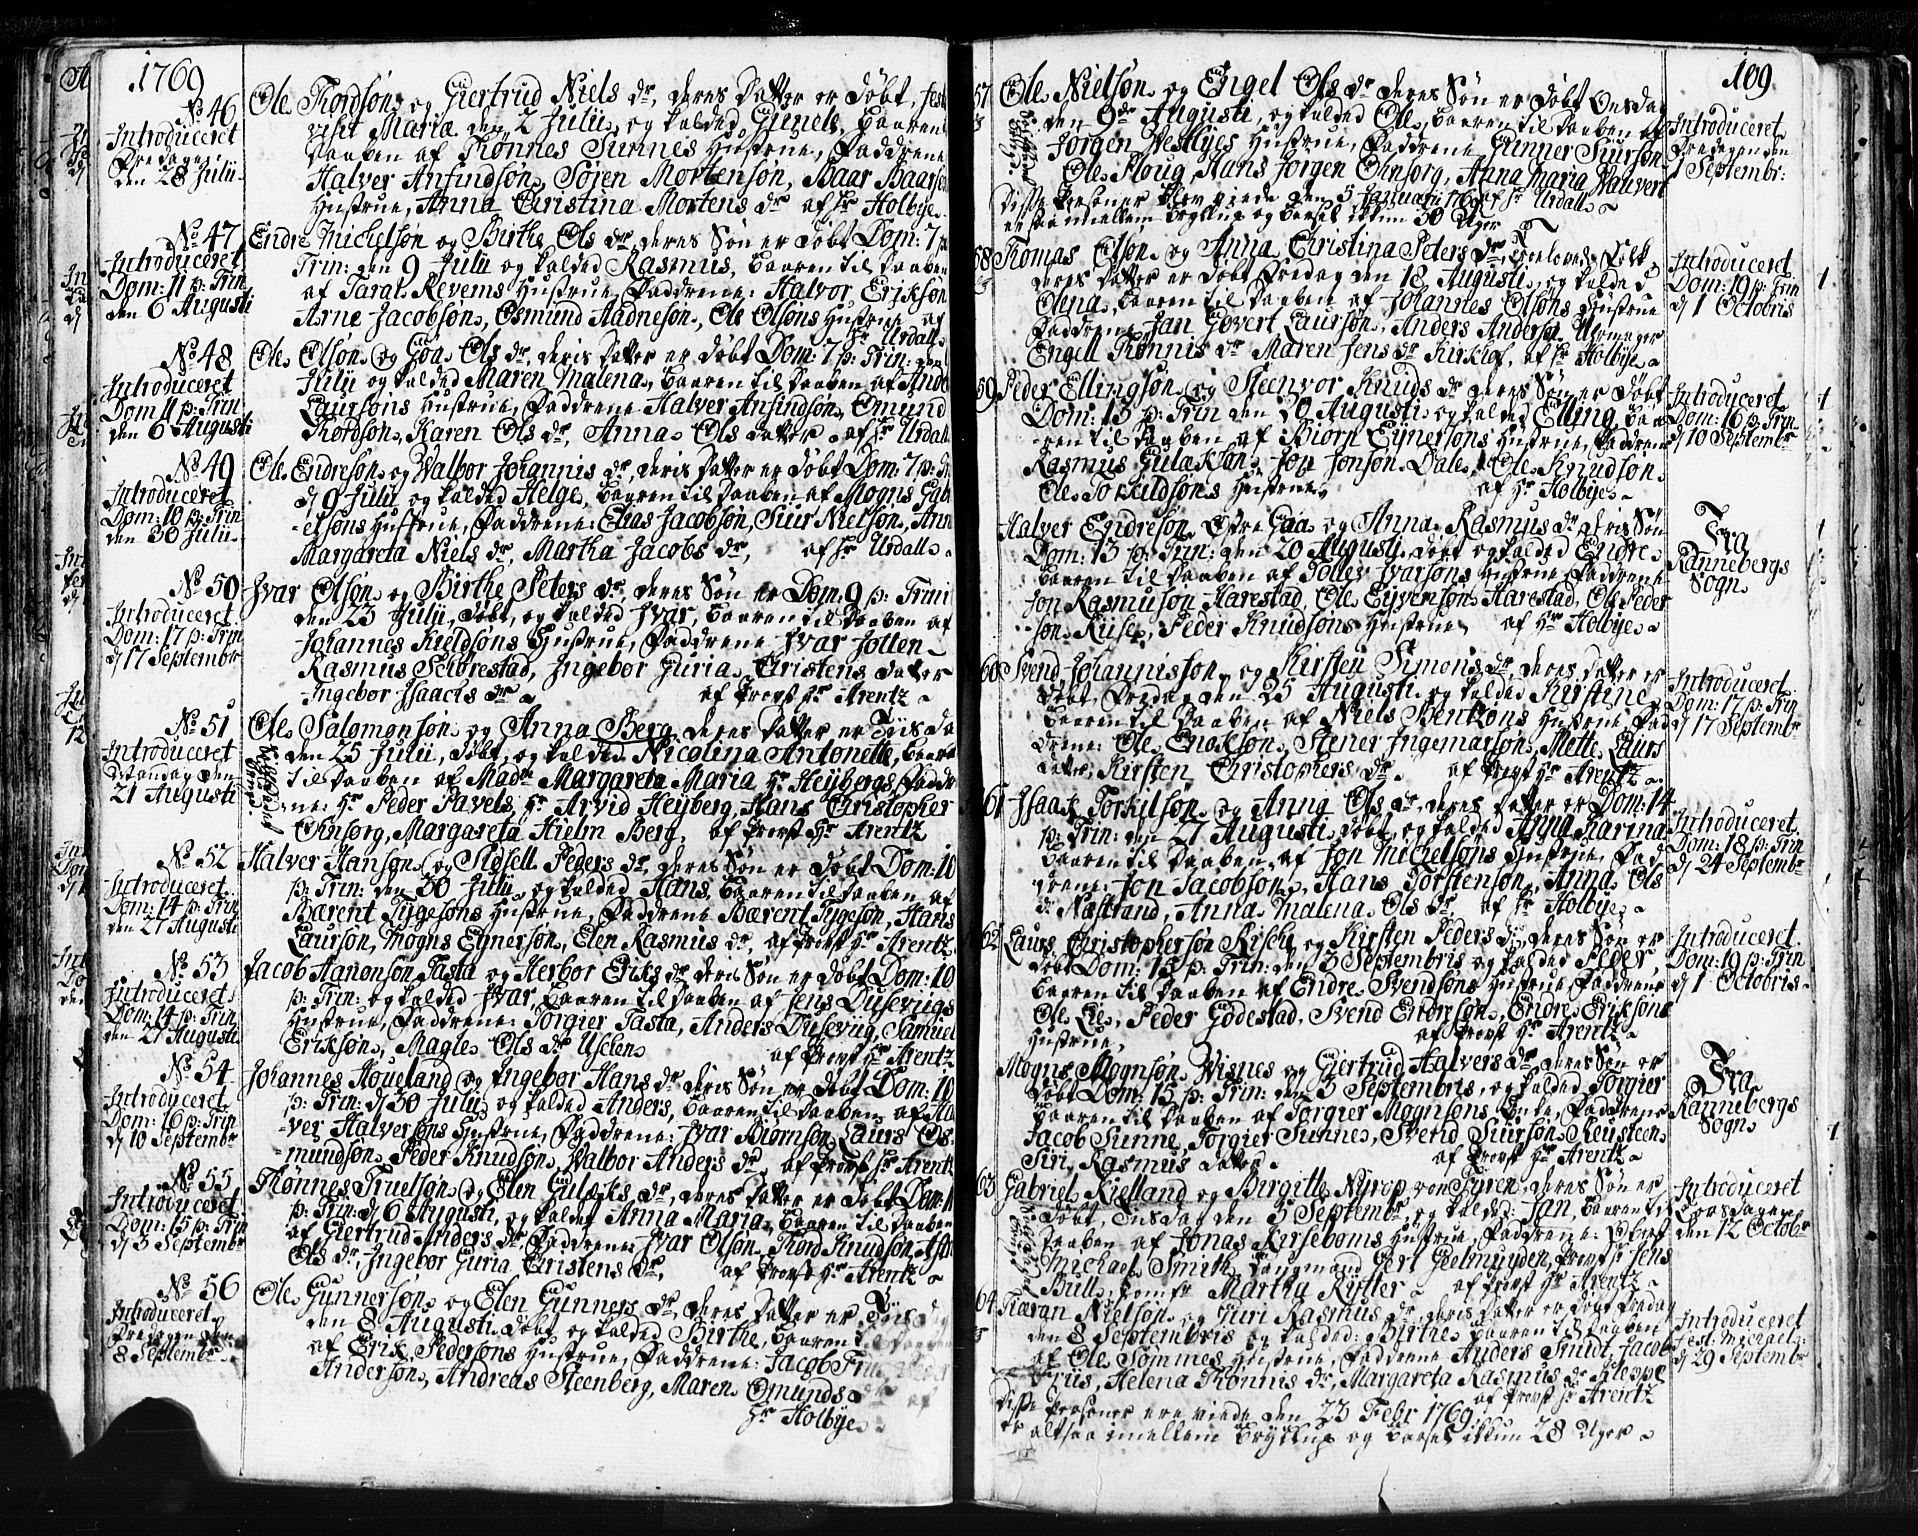 1769
No 46
Introduceret
Fredagen
den 28 Julii
Ole Thordsøn og Giertrud Niels dr, deres Datter er døbt, fest
visit Mariæ den 2 Julii og kalded Gunele, baaren
Daaben af Thønnes Sunnes Hustrue, Faddrene
Halver Anfindsøn, Sören Mortensøn, Baar Baarsøn
Hustrue, Anna Christina Mortens dr af Hr Holbye
No 47
Introduceret
Dom: 11 p: Trin
den 6 Augusti
Endre Michelsøn og Birthe Ols dr, deres Søn er døbt Dom: 7 p
Trin: den 9 Julii og kalded Rasmus, baaren til Daaben
af Taral Revems Hustrue, Faddrene: Halvor Eriksøn
Arne Jacobsøn, Osmund Aadnesøn, Ole Olsøns Hustrue af
Hr Urdall
No 48
Introduceret
Dom 11 p: Trin
den 6 Augusti
Ole Olsøn og Goa Ols dr, deris Datter er døbt Dom: 7 p: Trin: den
Julii og kalded Maren Malena, baaren til Daaben af Ande
Laursøns Hustrue, Faddrene Halver Anfindsøn, Omund
Thordsøn, Karen Ols dr, Anna Ols Datter af Hr Urdall
No 49
Introduceret
Dom: 10 p: Trin
den 30 Julii
Ole Endresøn og Walbor Johannis dr, deris Datter er døbt Dom: 7 p:
d 9 Julii og kalded Helge, baaren til Daaben af Mogns Gab
-elsøns Hustrue, Faddrene: Elias Jacobsøn, Siur Nielsøn, Ann
Margareta Niels dr, Martha Jacobs dr, af Hr Urdall
No 50
Introduceret
Dom: 17 p: Trin
d 17 Septembr
Ivar Olsøn og Birthe Peters dr, deres Søn er Dom: 9 p: Trini
den 23 Julii, døbt, og kalded Ivar, baaren til Daaben af
Johannes Kieldsøns Hustrue, Faddrene Ivar Jotten
Rasmus Selbrestad, Ingebor Guria, Christens Datter
Ingebor Isaacis dr af Provst Hr Arentz
No 51
Introduceret
Mandag den
21 Augusti
Ole Salomonsøn og Anna Berg deres Datter er Tiisda
den 25 Julii, døbt, og kaldes Nicolina Antonette, baaren
til Daaben af Madme Margareta Maria Hr Heÿbergs, Faddr
-ene: Hr Peder Pavels, Hr Arvid Heÿberg, Hans Christopher
Ohnsorg, Margareta Hielm Berg, af Provst Hr Arentz
No 52
Introduceret
Dom: 14 p: Trin
den 27 Augusti
Halver Hansøn og Sidsell Peders dr, deres Søn er døbt Dom: 10
p: Trin: den 30 Julii, og kaldes Hans, baaren til Daaben af
Bærent Tÿgesøns Hustrue, Faddrene Bærent Tÿgesøn, Hans
Laursøn, Mogns Eÿnersøn, Elen Rasmus dr, af Provst Hr Arentz
No 53
Introduceret
Dom: 14 p: Trin
den 27 Augusti
Jacob Hanonsøn Tasta og Herbor Eriks dr deris Søn er døbt Dom: 10
p: Trin: og kaldes Ivar, baaren til Daaben af Jens Dusevigs
Hustrue, Faddrene: Torgier Tasta, Anders Dusevig, Samuel
Eriksøn, Magle Ols dr Uselen af Provst Hr Arentz
No 54
Introduceret
Dom: 16 p: Trin
d 10 Septembr
Johannes Hoveland og Ingebor Hans dr deris Søn er døbt Dom: 10
p: Trin: d 30 Julii og kaldes Anders, baaren til Daaben af Hal
-ver Halversøns Hustrue, Faddrene: Ivar Biørnsøn, Laurs Os-
-mundsøn, Peder Knudsøn, Walbor Anders dr, af Provst Hr Arentz
No 55
Introduceret
Dom: 15 p: Trin
d 3 Septembr
Thønnes Truelsøn og Elen Gulachs dr, deres Datter er døbt Dom: 11
p: Trin: d 6 Augusti, og kaldes Anna Maria, baaren til Daaben
af Giertrud Anders dr, Faddrene Ivar Olsøn, Thord Knudsøn, Astr
Ols dr, Ingebor Guria Christens dr, af Provst Hr Arentz
No 56
Introduceret
Fredagen den
8 Septembr
Ole Gunnersøn og Elen Gunners dr, deres Datter er Tiisdag
den 8 Augusti døbt og kaldes Birthe, baaren
af Erik Pedersøns Hustrue, Faddrene: Jacob
Andersøn, Andreas Steenberg, Maren Omunds dr af
Hr Holbye
109
57
Ole Nielsøn og Engel Ols dr deres Søn er døbt Onsdag
den 9de Augusti, og kaldes Ole, baaren til Daaben af
Jørgen Westbÿes Hustrue, Faddrene Gunner Siursøn
Ole Ploug, Hans Jørgen Ohnsorg, Anna Maria Wauvert
Disse Personer blev viede den 5 Januarii 1769 af Hr Urdall
er saa imellem Brÿllup og Barsel ikkun 30 Uger
Introduceret
Fredagen den
1 Septembr:
58
Thomas Olsøn og Anna Christina Peters dr, Trolovede Folk,
deres Datter er døbt Fredag den 18 Augusti, og kaldes
Olena, baaren til Daaben af Johannes Olsøns Hustrue
Faddrene Jan Govert Laursøn, Anders Andersøn Uhrmager
Engell Thønnis dr Maren Jens dr Kirkhof, af Hr Holbÿe
Introduceret
Dom: 19 p: Trin
d 1 Octobris
59
Peder Ellingsøn og Steenvor Knuds dr deres Søn er døbt
Dom: 13 p: Trin den 20 Augusti og kaldes Elling, baa
-ren til Daaben af Biørn Eÿnersøns Hustrue, Faddrene
Rasmus Gulaksøn, Jon Jonsøn Dale, Ole Knudsøn
Ole Torkildsøns Hustrue af Hr Holbÿe
Introduceret
Dom: 16 p: Trin
d 10 Septembr
Halver Endresøn Øfre Gaa og Anna Rasmus dr deris Søn
Dom: 13 p: Trin: den 20 Augusti døbt og kaldes Endre
baaren til Daaben af Tollev Ivarsøns Hustrue, Faddrene
Jon Rasmusøn Harestad, Ole Eÿvensøn Harestad, Ole Peder
søn Kuise, Peder Knudsøns Hustrue af Hr Holbÿe
Fra
Rannebergs
Sogn
60
Svend Johannissøn og Kirsten Simons dr, deres Datter er
døbt Fredag den 25 Augusti og kaldes Kirstine
baaren til Daaben af Niels Bentzøns Hustrue, Fad
drene: Ole Enoksøn, Stener Ingemarsøn, Mette Laurs
Datter, Kirsten Christophers dr. af Provst Hr Arentz
Introduceret
Dom: 17 p: Trin
d 17 Septembr
61
Isaak Torkilsøn og Anna Ols dr, deres Datter er Dom: 14
p: Trin: den 27 Augusti døbt, og kaldes Anna Karina
baaren til Daaben af Jon Michelsøns Hustrue, Fad
drene: Jon Jacobsøn, Hans Torstensøn, Anna Ols
dr Næstrand, Anna Malena Ols dr af Hr Holbÿe
Introduceret
Dom: 18 p: Trin
d 24 Septembr
62
Laurs Christophersøn Rische og Kirsten Peders dr, deres Søn er
døbt Dom: 15 p: Trin: den 3 Septembris og kaldes Peder,
baaren til Daaben af Endre Svendsøns Hustrue, Faddrene
Ole Lie, Peder Godestad, Svend Endresøn, Endre Eriksøns
Hustrue, af Provst Hr Arentz
Introduceret
Dom: 19 p: Trin
d 1 Octobris
Mogns Mognsøn Wisnes og Giertrud Halvers dr deres Søn er
døbt Dom: 15 p: Trin: den 3 Septembris, og kaldes Torgier
baaren til Daaben af Torgier Mognsøns Enke, Faddrene
Jacob Sunne, Torgier Sunnes, Svend Siursøn Reusteen
Siri Rasmus Datter af Provst Hr Arentz
Fra
Rannebergs
Sogn
63
Gabriel Kielland og Birgitte Nÿrop von Tÿren, deres Søn er
døbt, Tiisdag den 5 Septembr, og kaldes: Jan, baaren til
Daaben af Jonas Kirseboms Hustrue, Faddrene:
Michael Smith, Laugmand Gert Geelmuÿden, Provst Hr Jens
Bull, Jomfr Martha Rÿtter af Provst Hr Arentz
Introduceret
Torsdagen
den 12 Octobr
64
Tiæran Nielsøn og Guri Rasmus dr, deris Datter er døbt Fredag
den 8 Septembris og kaldes: Birthe, baaren til Daaben
af Ole Sømmes Hustrue, Faddrene Anders Smidt, Jacob
Friis, Helena Thønnis dr, Margareta Rasmus dr Kleppe
af Provst Hr Arentz
Disse Personer ere viede den 23 Febr 1769,
er altsaa imellem Brÿllup og Barsel ikkun 28 Uger
Introduceret
Fest: Michaelis
d 29 Septembr